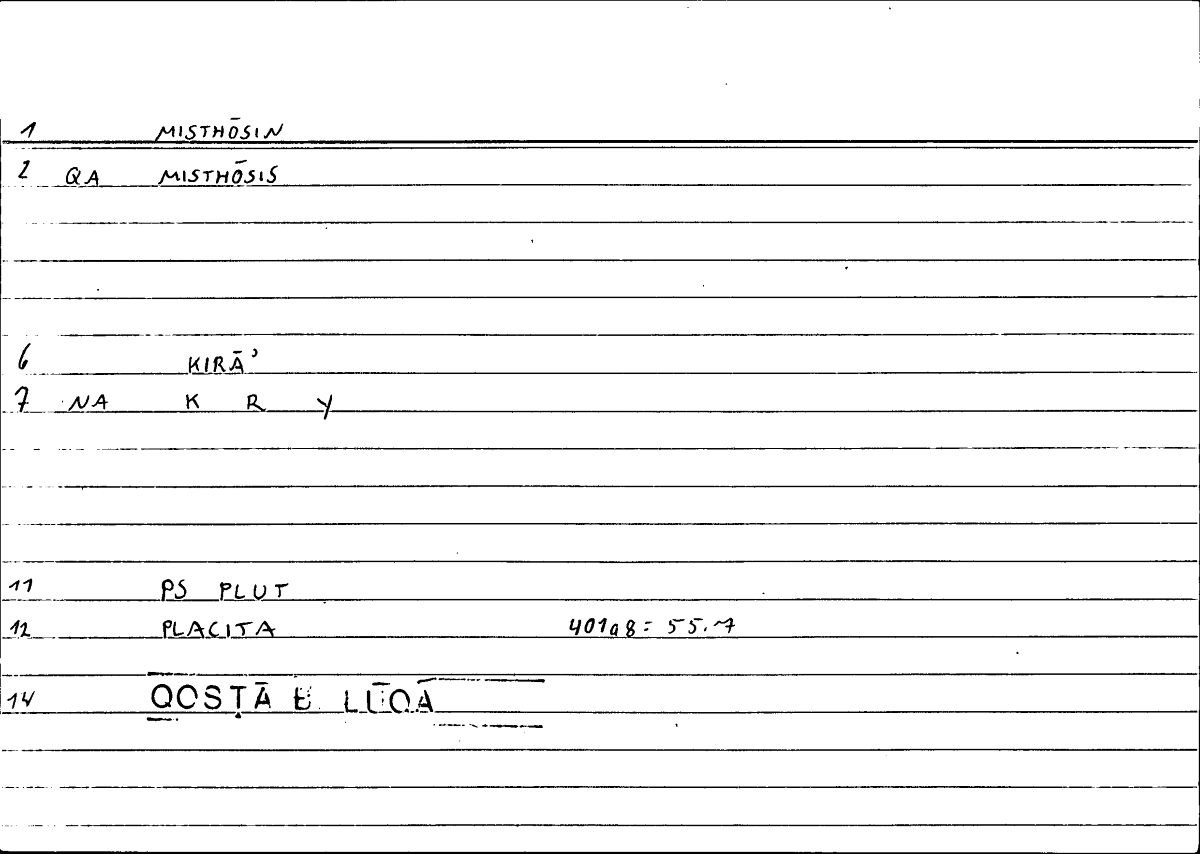 1 MISTHŌSIN
2 QA MISTHŌSIS
6 KIRĀʾ
7 NA K R Y
11 PS PLUT
12 PLACITA 401a8 = 55.7
14 QOSṬĀ B LŪQĀ